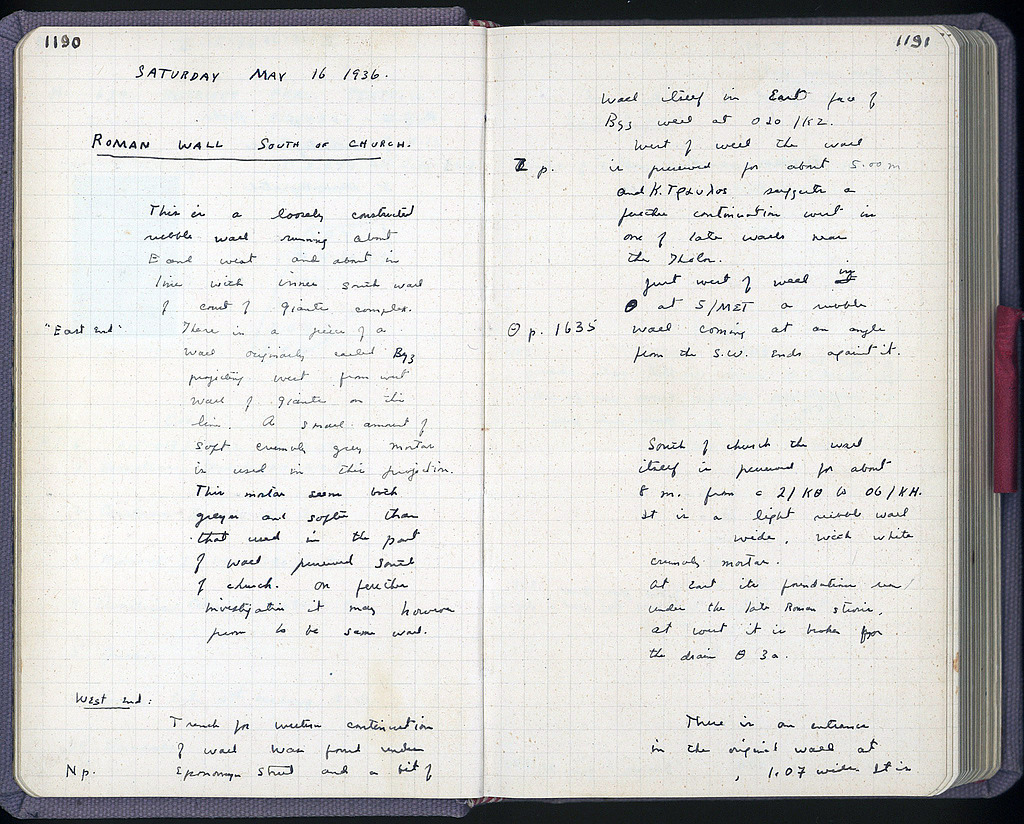 1190
SATURDAY MAY 16 1936.
ROMAN WALL SOUTH OF CHURCH.
This is a loosely constructed
rubble wall running about
E and west and about in
line with inner south wall
of court of Giants complex.
"East End"
There is a piece of a
wall originally called Bg3
projecting west from west
wall of Giants on this
line. A small amount of
soft crumbly grey mortar
is used in this projection.
This mortar seems both
greyer and softer than
that used in the part
of wall preserved south
of church. On further
investigation it may however
prove to be same wall.
West End:
Trench for western continuation
of wall was found under
Np. Eponomyn street and a bit of
1191
wall itself in East face of
Bg3 well at 020/KZ.
West of well the wall
Z p. is preserved for about 5.00 m
and Κ. Τραυλος suggests a
further continuation west in
one of late walls near
the Tholos.
Just west of well in
Θ at 5/ΜΕΤ a rubble
Θ p. 1635 wall coming at an angle
from the S.W. ends against it.
South of church the wall
itself is preserved for about
8 m. from c 21/ΚΘ to 06/ΚΗ.
It is a light rubble wall
wide, with white
crumbly mortar.
At East its foundation run
under the late Roman stoa,
at west it is broken for
the drain Θ 3a.
There is an entrance
in the original wall at
, 1.07 wide. It is